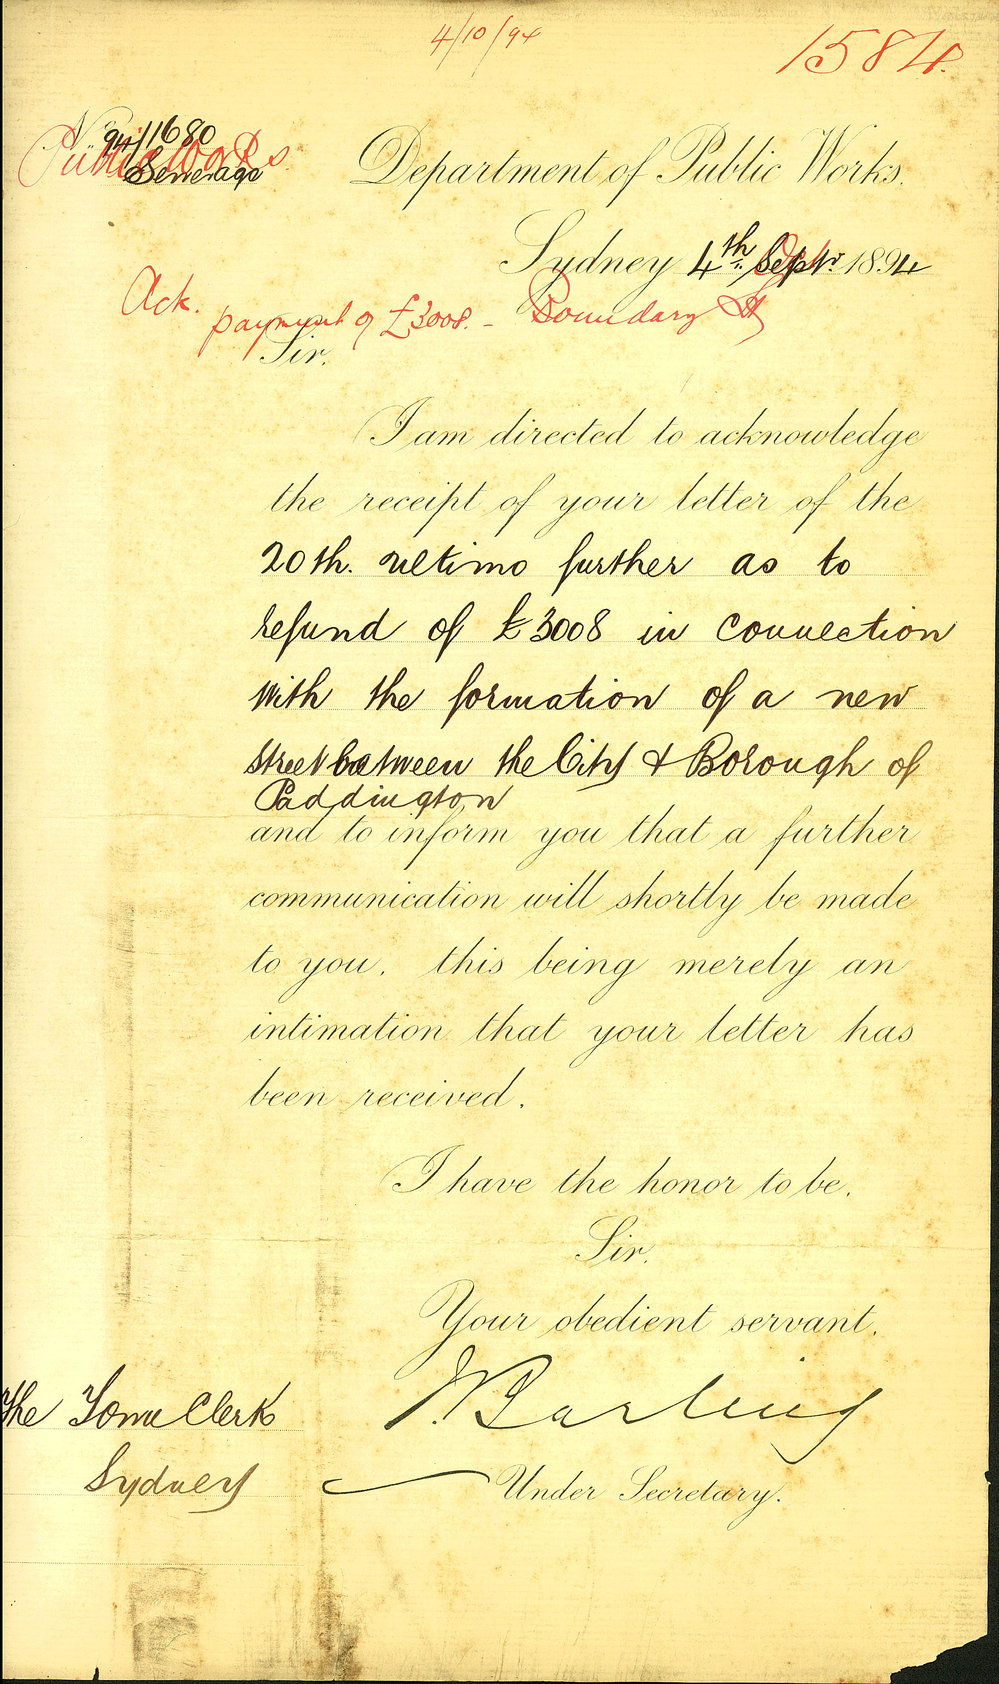 4/10/94
1584.
No. 94/11680
Public Works
Sewerage
Department of Public Works.
Sydney 4th. Septr. Oct 1894
Ack. payment of £3008. - Boundary St
Sir,
I am directed to acknowledge
the receipt of your letter of the
20th. ultimo further as to
refund of £3008 in connection
with the formation of a new
street between the City & Borough of
Paddington
and to inform you that a further
communication will shortly be made
to you, this being merely an
intimation that your letter has
been received.
I have the honor to be,
Sir,
Your obedient servant,
J Barling
Under Secretary.
The Town Clerk
Sydney